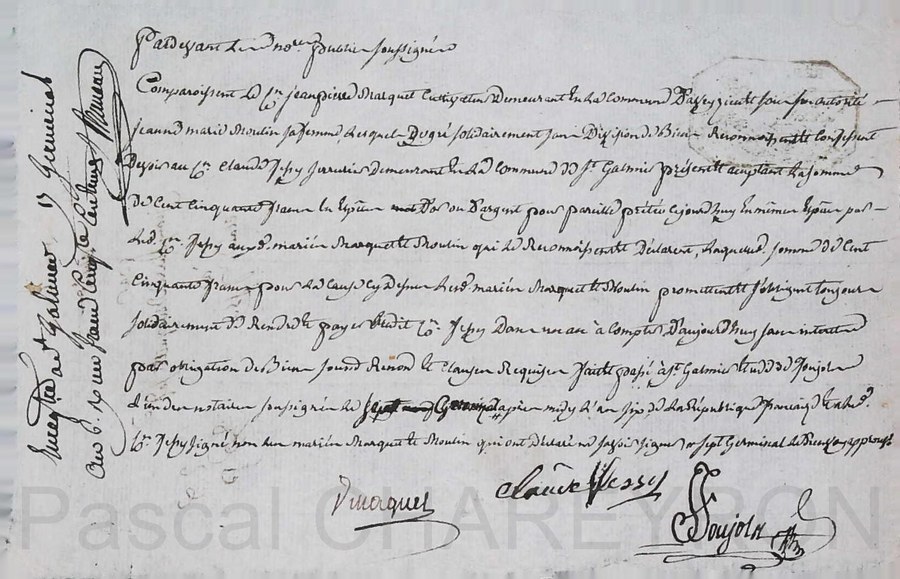 Pardevant les no.res publics soussignés
Comparoissent le C.en Jeanpierre Marquet Cultivateur demeurant en la Commune D'aveyzieux & sous son autorité
Jeanne marie Moulin sa femme lesquels De gré solidairement sans Division de Biens Reconnoissent & Confessent
Devoir au C.en Claude Jessy serrurier demeurant en la Commune de S.t Galmier présent & acceptant la somme
De Cent cinquante francs en Espèces d'or ou D'argent pour pareille prêtée ce jourd'huy en mêmes Espèces par
led. C.en Jessy auxd. mariés Marquet & Moulin qui le Reconnoissent & Déclarent, Laquelle somme de Cent
Cinquante francs pour la Cause cy dessus lesd. mariés Marquet & Moulin promettent & s'obligent toujours
solidairement de Rendre & payer audit C.en Jessy Dans un an à Compter D'aujourd'huy sans intérêt
par obligation de Biens soum.s Renon.s & Clauses Requises fait & passé à S.t Galmier Etude de Soujols
L'un des notaires soussignés le après midy l'an six de la République française & a led.
C.en Jessy signé non les mariés Marquet & Moulin qui ont déclaré ne savoir signer sept Germinal approuvé
Claude Jessy
Soujols
Enregistré à S.t Galmier 17 Germinal
an 6. R un franc cinq.te Centimes
Pascal CHAREYRON